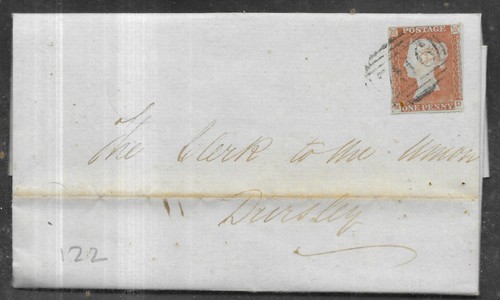 POSTAGE
ONE PENNY
The Clerk to the Union
Dursley
122